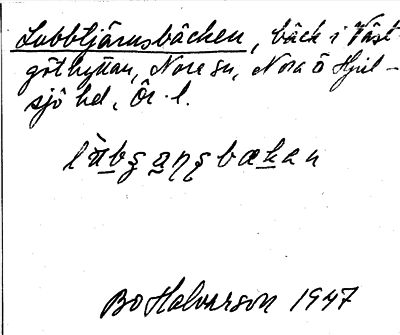 Lubbtjärnsbäcken, bäck i Väst-
göthyttan, Nora sn, Nora o Hjul-
sjö hd, Ör. l.
Bo Halvarson 1947